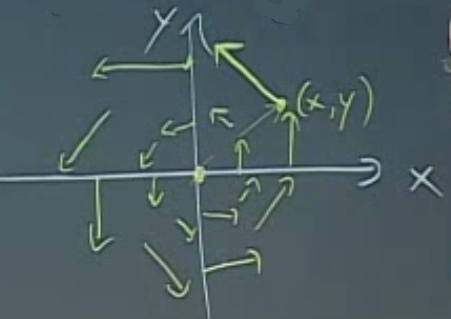 y
(x,y)
x